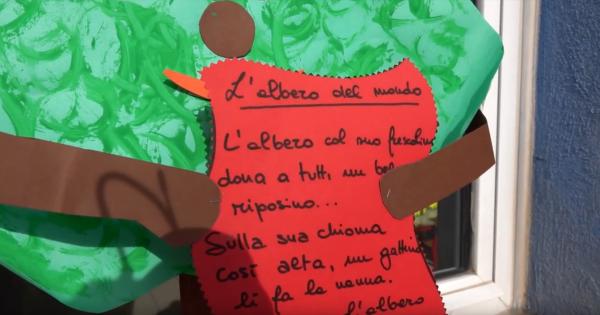 L'albero del mondo
L'albero col suo
dona a tutti, un
riposino...
Sulla sua chioma
così alta, un gattino
lì fa la nanna.
l'albero